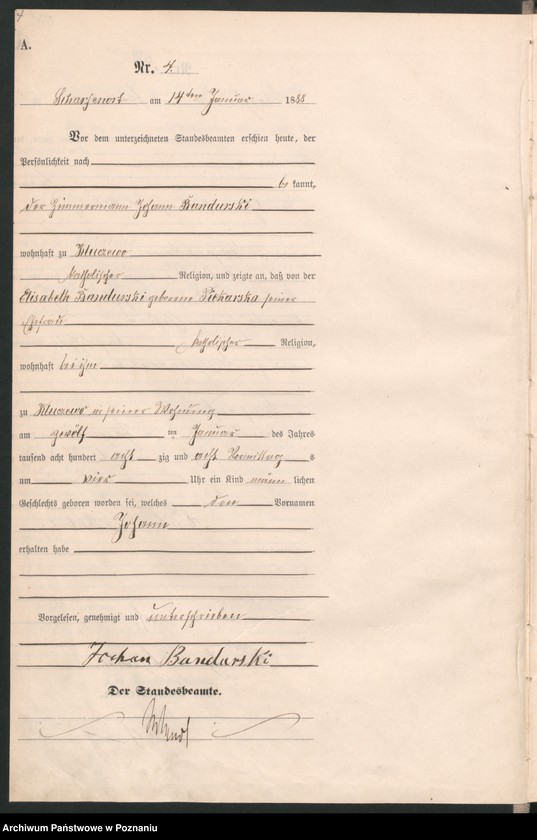 4
A.
Nr. 4.
Scharfenort am 14ten Januar 1888
Vor dem unterzeichneten Standesbeamten erschien heute, der
Persönlichkeit nach
be kannt,
der Zimmermann Johann Bandurski
wohnhaft zu Kluczewo
katholischer Religion, und zeigte an, daß von der
Elisabeth Bandurski geborene Piekarska seiner
Ehefrau
katholischer Religion,
wohnhaft bei ihm
zu Kluczewo in seiner Wohnung
am zwölf ten Januar des Jahres
tausend acht hundert acht zig und acht Vormittag s
um vier Uhr ein Kind männ lichen
Geschlechts geboren worden sei, welches den Vornamen
Johann
erhalten habe
Vorgelesen, genehmigt und unterschrieben
Johan Bandurski
Der Standesbeamte.
Archiwum Państwowe w Poznaniu